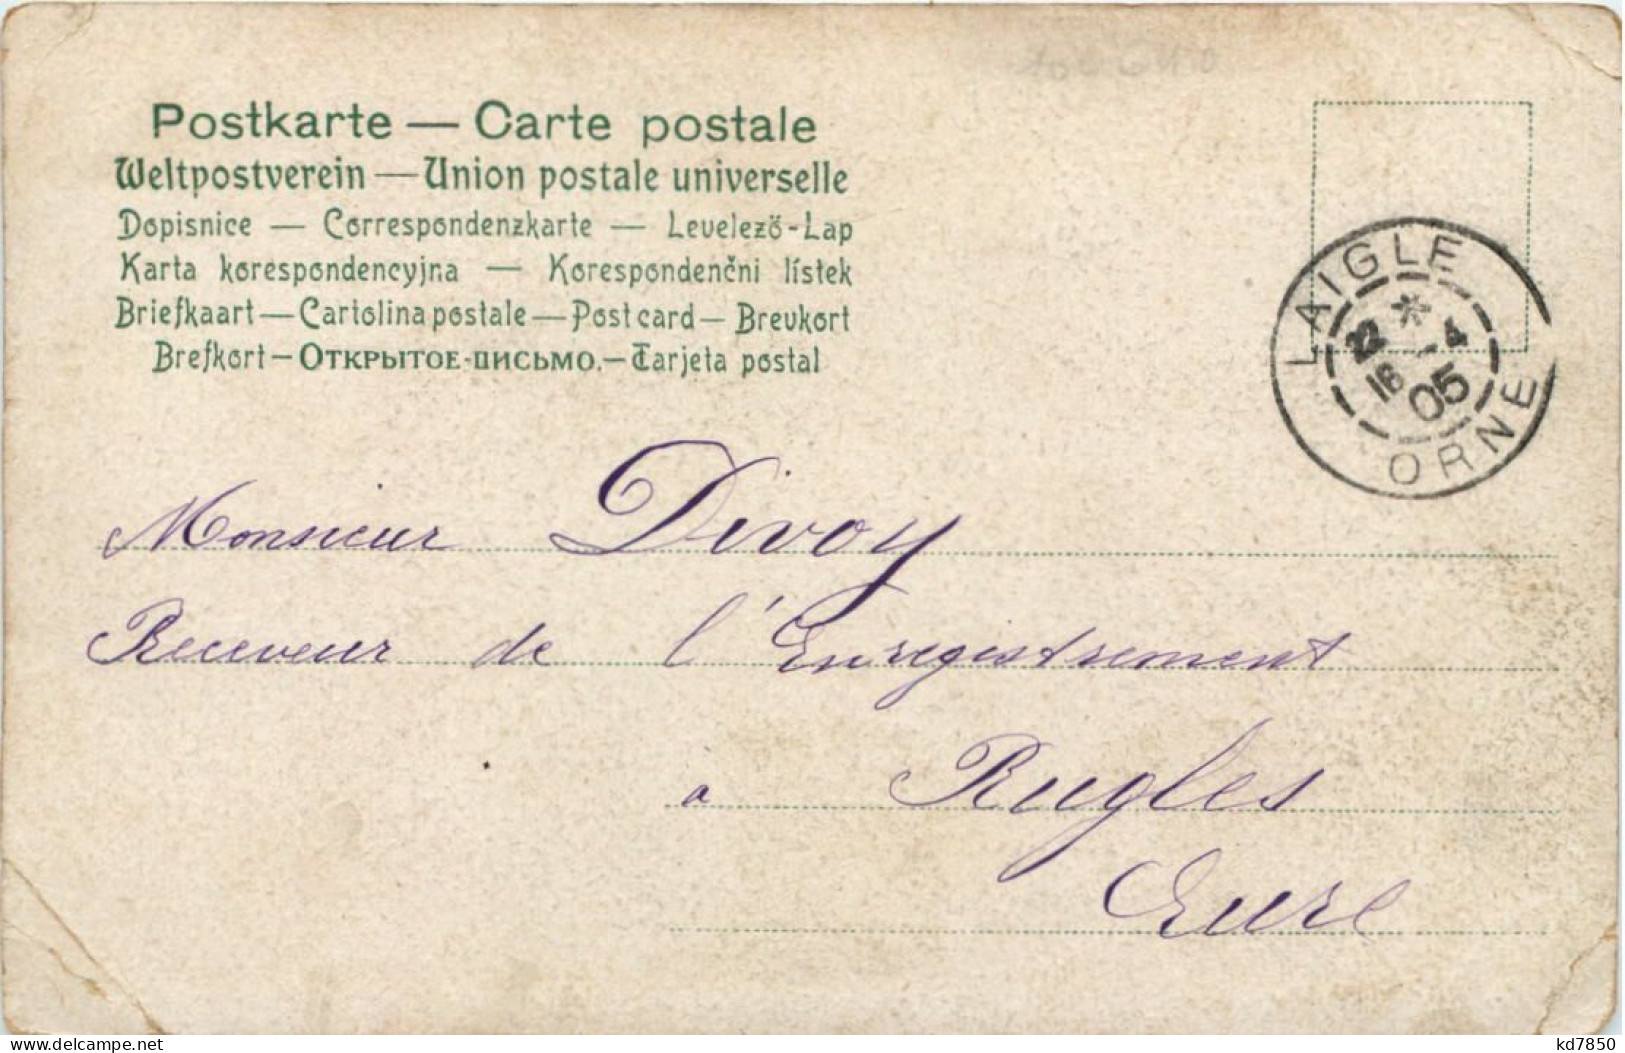 Postkarte — Carte postale
Weltpostverein — Union postale universelle
Dopisnice — Correspondenzkarte — Levelező-Lap
Karta korespondencyjna — Korespondenčni lístek
Briefkaart — Cartolina postale — Post card — Brevkort
Brefkort — Открытое письмо. — Tarjeta postal
LAIGLE
22
18 -4
05
ORNE
Monsieur Divoy
Receveur de l'Enregistrement
a Rugles
Eure
delcampe.net
kd7850